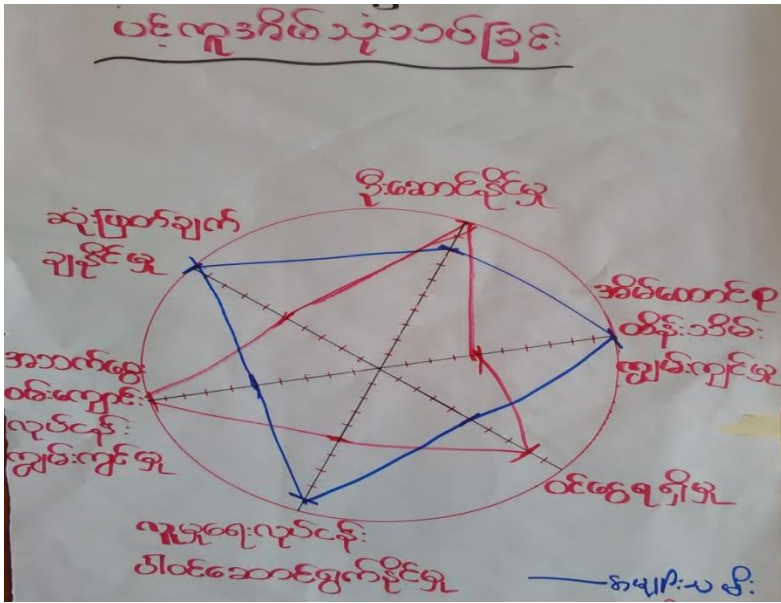 ပင့်ကူအိမ်သုံးသပ်ခြင်း
ဦးဆောင်နိုင်မှု
ဆုံးဖြတ်ချက်
ချနိုင်မှု
အိမ်ထောင်စု
ထိန်းသိမ်း
ကျွမ်းကျင်မှု
အသက်မွေး
ဝမ်းကျောင်း
လုပ်ငန်း
ကျွမ်းကျင်မှု
ဝင်ငွေရရှိမှု
လူမှုရေးလုပ်ငန်း
ပါဝင်ဆောင်ရွက်နိုင်မှု
အမျိုးသမီး